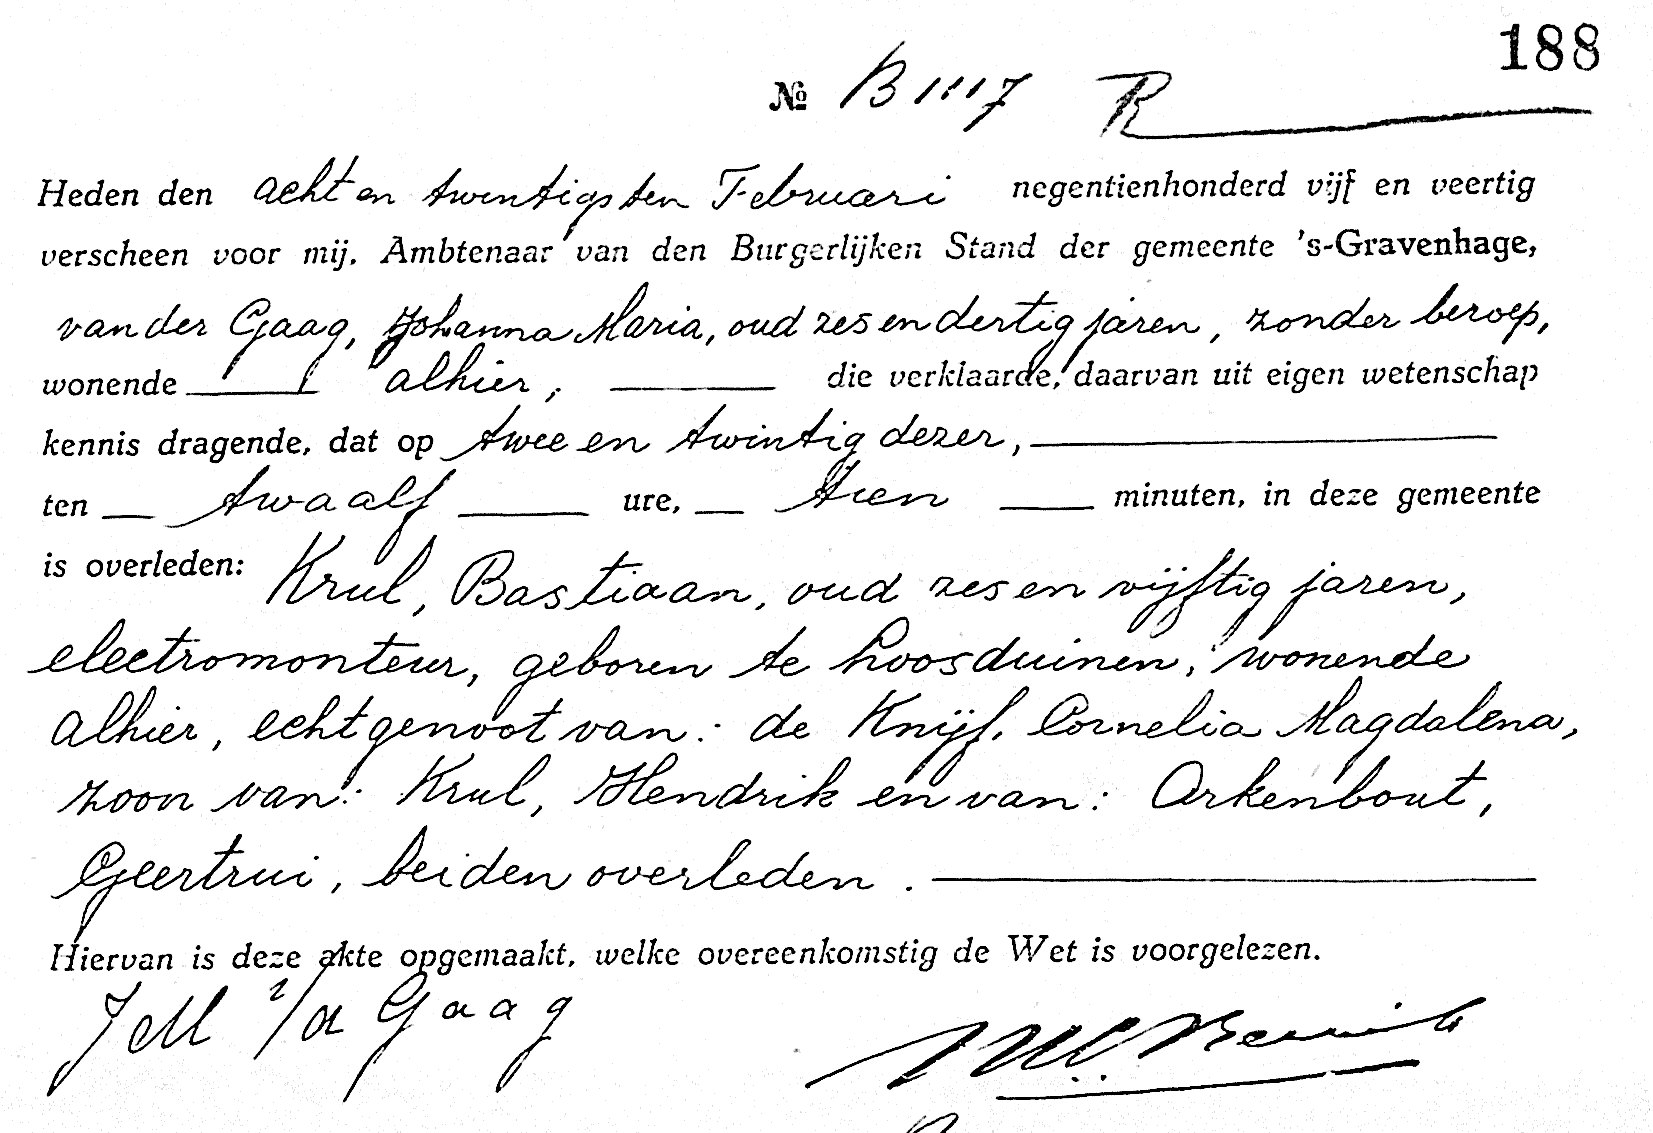 188
№ B 1117 R
Heden den acht en twintigsten Februari negentienhonderd vijf en veertig
verscheen voor mij, Ambtenaar van den Burgerlijken Stand der gemeente 's-Gravenhage,
van der Gaag, Johanna Maria, oud zes en dertig jaren, zonder beroep,
wonende alhier, die verklaarde, daarvan uit eigen wetenschap
kennis dragende, dat op twee en twintig dezer,
ten twaalf ure, tien minuten, in deze gemeente
is overleden: Krul, Bastiaan, oud zes en vijftig jaren,
electromonteur, geboren te Loosduinen, wonende
alhier, echtgenoot van: de Knijf, Cornelia Magdalena,
zoon van: Krul, Hendrik en van: Arkenbout,
Geertrui, beiden overleden.
Hiervan is deze akte opgemaakt, welke overeenkomstig de Wet is voorgelezen.
J M v/d Gaag